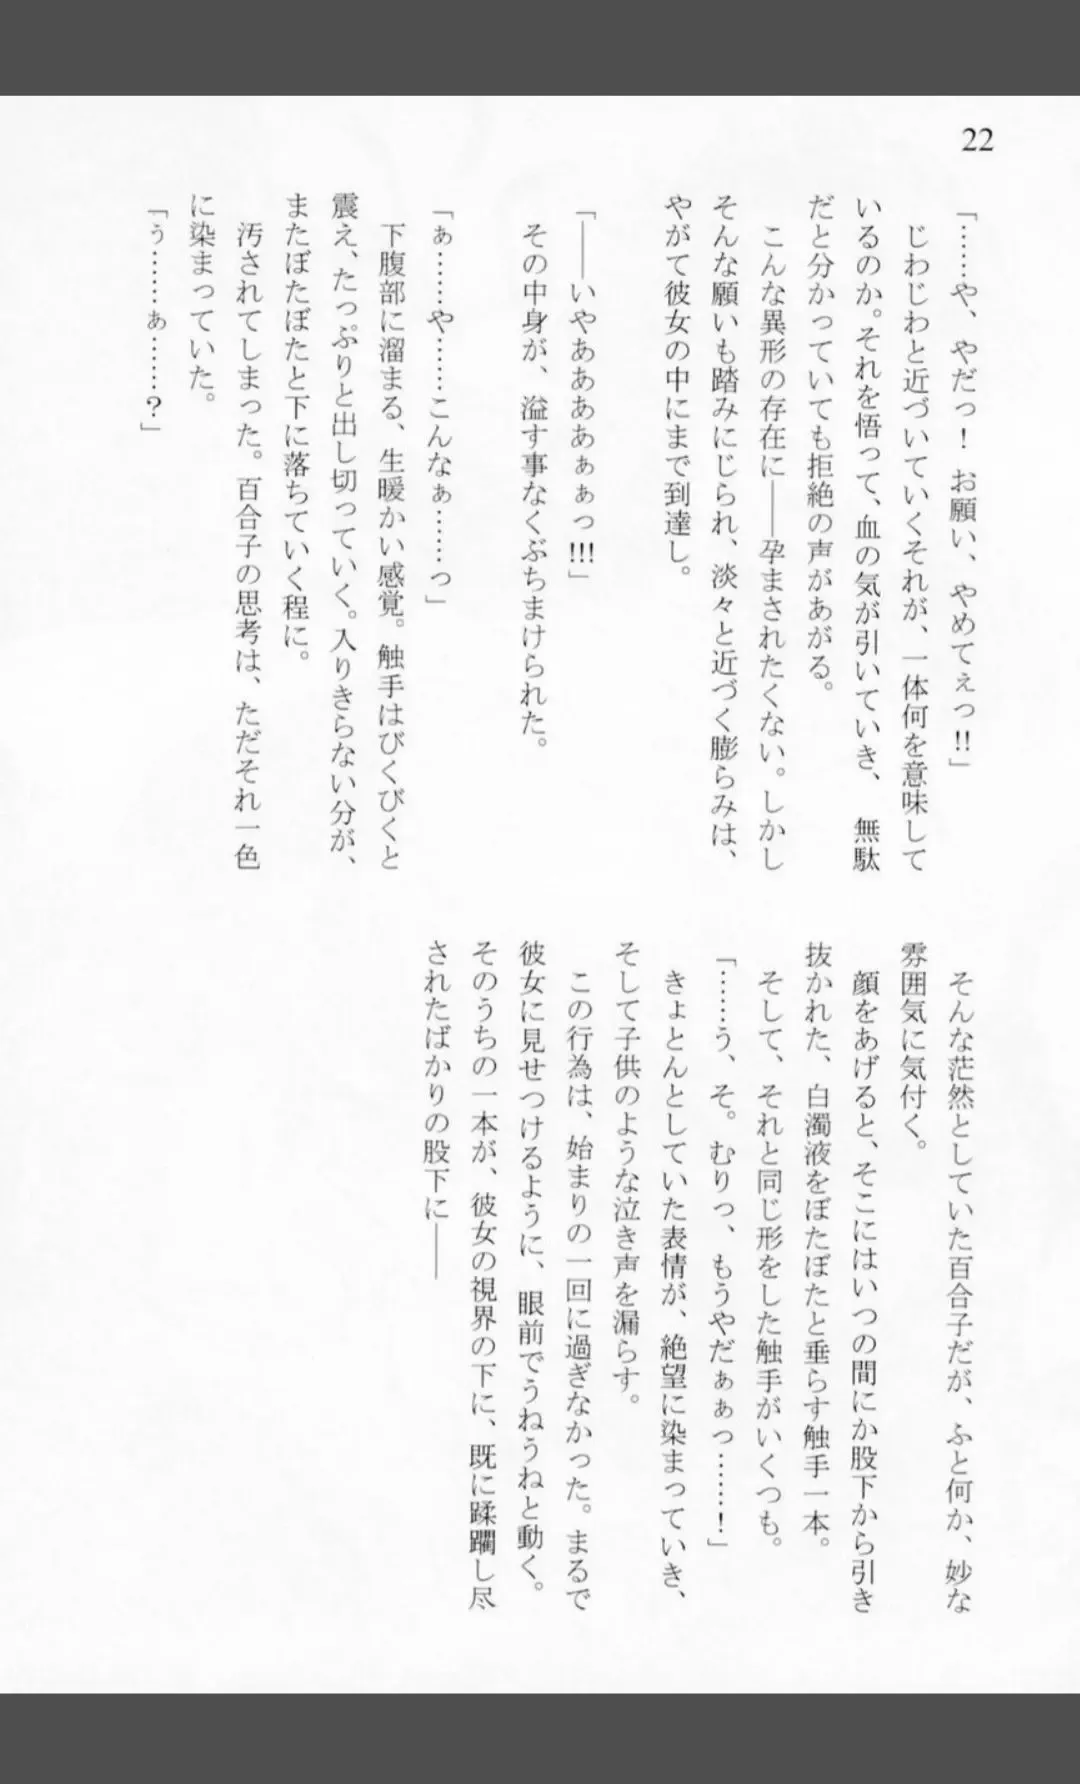 22
「……や、やだっ! お願い、やめてぇっ!!」
じわじわと近づいていくそれが、一体何を意味して
いるのか。それを悟って、血の気が引いていき、 無駄
だと分かっていても拒絶の声があがる。
こんな異形の存在に――孕まされたくない。しかし
そんな願いも踏みにじられ、淡々と近づく膨らみは、
やがて彼女の中にまで到達し。
「――いやああああぁぁっ!!!」
その中身が、溢す事なくぶちまけられた。
「ぁ……や……こんなぁ……っ」
下腹部に溜まる、生暖かい感覚。触手はびくびくと
震え、たっぷりと出し切っていく。入りきらない分が、
またぼたぼたと下に落ちていく程に。
汚されてしまった。百合子の思考は、ただそれ一色
に染まっていた。
「ぅ……ぁ……?」
そんな茫然としていた百合子だが、ふと何か、妙な
雰囲気に気付く。
顔をあげると、そこにはいつの間にか股下から引き
抜かれた、白濁液をぼたぼたと垂らす触手一本。
そして、それと同じ形をした触手がいくつも。
「……う、そ。むりっ、もうやだぁぁっ……!」
きょとんとしていた表情が、絶望に染まっていき、
そして子供のような泣き声を漏らす。
この行為は、始まりの一回に過ぎなかった。まるで
彼女に見せつけるように、眼前でうねうねと動く。
そのうちの一本が、彼女の視界の下に、既に蹂躙し尽
されたばかりの股下に――